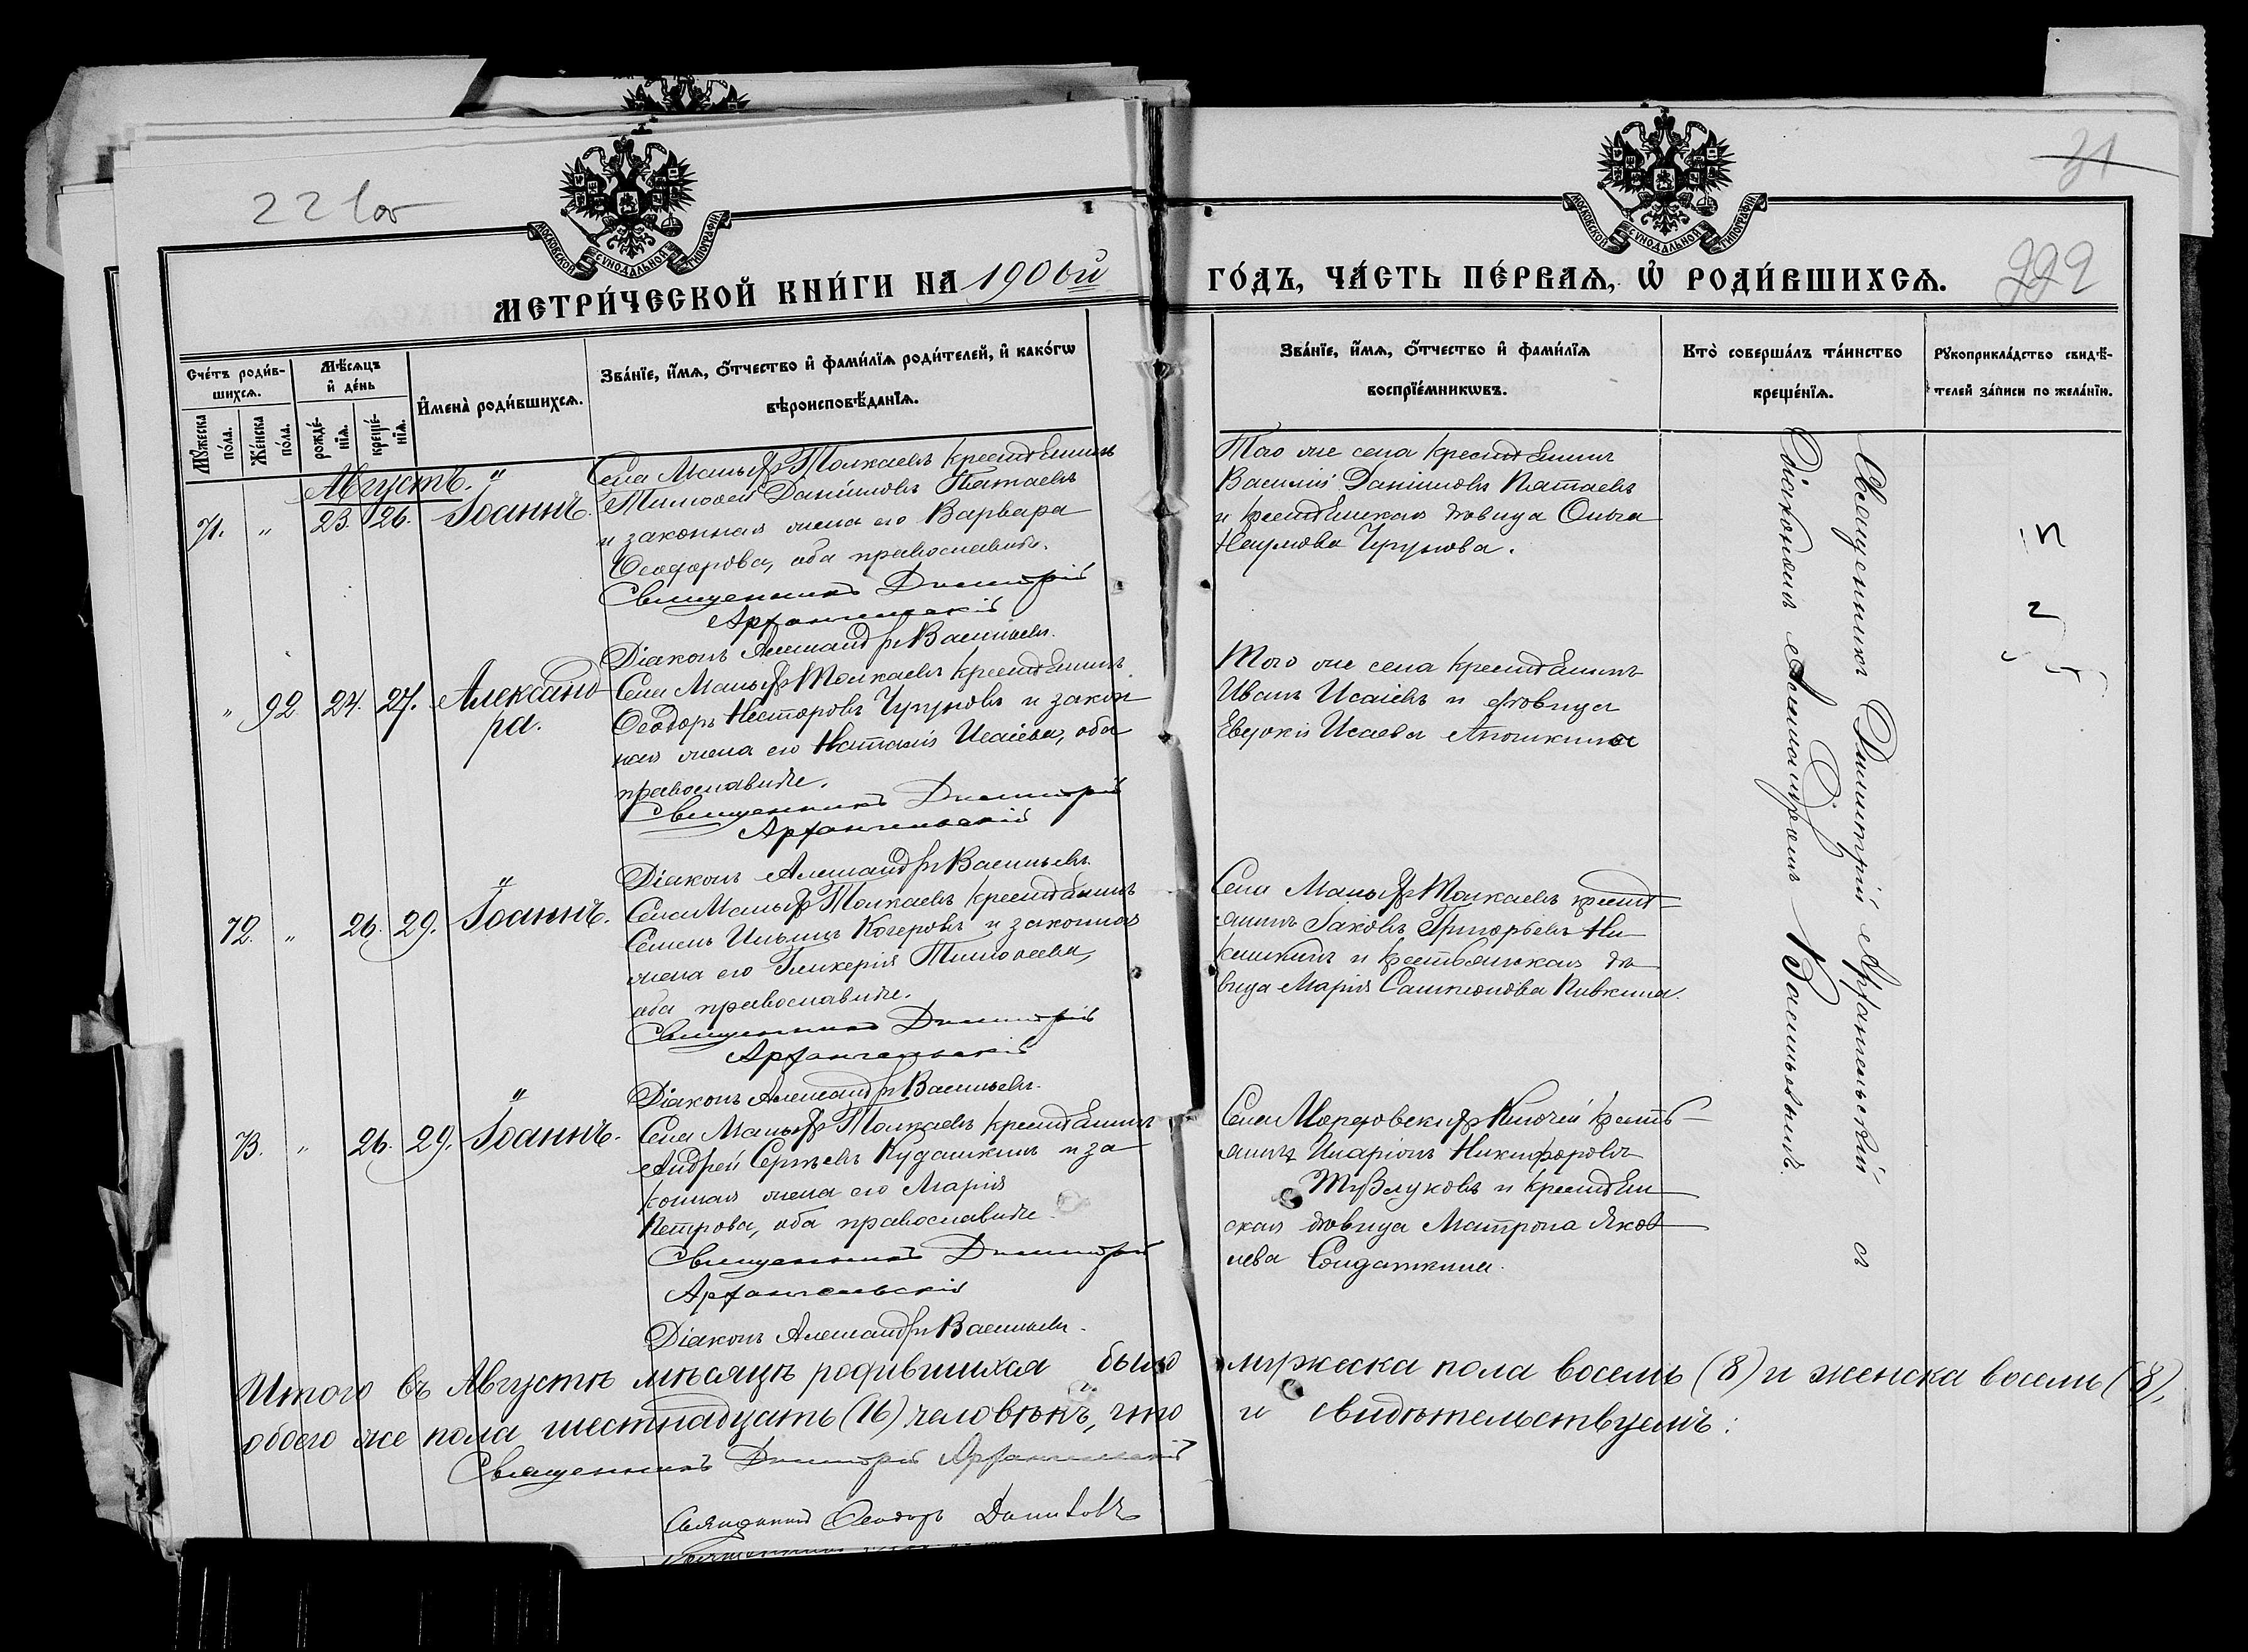 221об
31
222
МОСКОВСКОЙ СѴНОДАЛЬНОЙ ТИПОГРАФІИ
МОСКОВСКОЙ СѴНОДАЛЬНОЙ ТИПОГРАФІИ
МЕТРИ́ЧЕСКОЙ КНИ́ГИ НА 1906й ГО́ДЪ, ЧА́СТЬ ПЕ́РВАѦ, Ѡ҆ РОДИ́ВШИХСѦ.
Сче́тъ роди́в-
шихсѧ.
Мꙋ́жеска по́ла.
Же́нска по́ла.
Мѣ́сѧцъ и҆ де́нь
рожде́-нїѧ.
креще́-нїѧ.
И҆мена̀ роди́вшихсѧ.
Зва́нїе, и҆́мѧ, ѻ҆́тчество и҆ фами́лїѧ роди́телей, и҆ како́гѡ
вѣроисповѣ́данїѧ.
Зва́нїе, и҆́мѧ, ѻ҆́тчество и҆ фами́лїѧ
воспрїе́мникѡвъ.
Кто̀ соверша́лъ та́инство
креще́нїѧ.
Рꙋкоприкла́дство свидѣ́-
телей за́писи по жела́нїю.
Августъ.
71. " 23. 26. Іоаннъ.
Села Малыхъ Толкаевъ крестьянинъ
Тимоѳей Даніиловъ Патаевъ
и законная жена его Варвара
Ѳеодорова, оба православные.
Священникъ Димитрій
Архангельскій
Діаконъ Александръ Васильевъ.
Того же села крестьянинъ
Василій Даніиловъ Патаевъ
и крестьянская дѣвица Ольга
Наумова Чугунова.
" 92. 24. 27. Александ-
ра.
Села Малыхъ Толкаевъ крестьянинъ
Ѳеодоръ Несторовъ Чугуновъ и закон
ная жена его Наталія Исаіева, оба
православные.
Священникъ Димитрій
Архангельскій
Діаконъ Александръ Васильевъ.
Того же села крестьянинъ
Иванъ Исаіевъ и дѣвица
Евдокія Исаева Апошкина
72. " 26. 29. Іоаннъ.
Села Малыхъ Толкаевъ крестьянинъ
Семенъ Ильинъ Кочеровъ и законная
жена его Гликерія Тимоѳеева,
оба православные.
Священникъ Димитрій
Архангельскій
Діаконъ Александръ Васильевъ.
Села Малыхъ Толкаевъ крест-
янинъ Іаковъ Григорьевъ Ни-
кишкинъ и крестьянская дѣ-
вица Марія Самсонова Пивкина.
73. " 26. 29. Іоаннъ.
Села Малыхъ Толкаевъ крестьянинъ
Андрей Сергѣевъ Кудашкинъ и за-
конная жена его Марія
Петрова, оба православные
Священникъ Димитрій
Архангельскій
Діаконъ Александръ Васильевъ.
Села Мордовскихъ Ключей кресть-
янинъ Иларіонъ Никифоровъ
и крестьян-
ская дѣвица Матрона Яков-
лева Солдаткина.
Священникъ Димитрій Архангельскій съ
Діакономъ Александромъ Васильевымъ.
Итого въ Августѣ мѣсяцѣ родившихся было мужеска пола восемь (8) и женска восемь (8),
обоего же пола шестнадцать (16) человѣкъ, что и свидѣтельствуемъ:
Священникъ Димитрій Архангельскій
Священникъ Ѳеодоръ Даниловъ